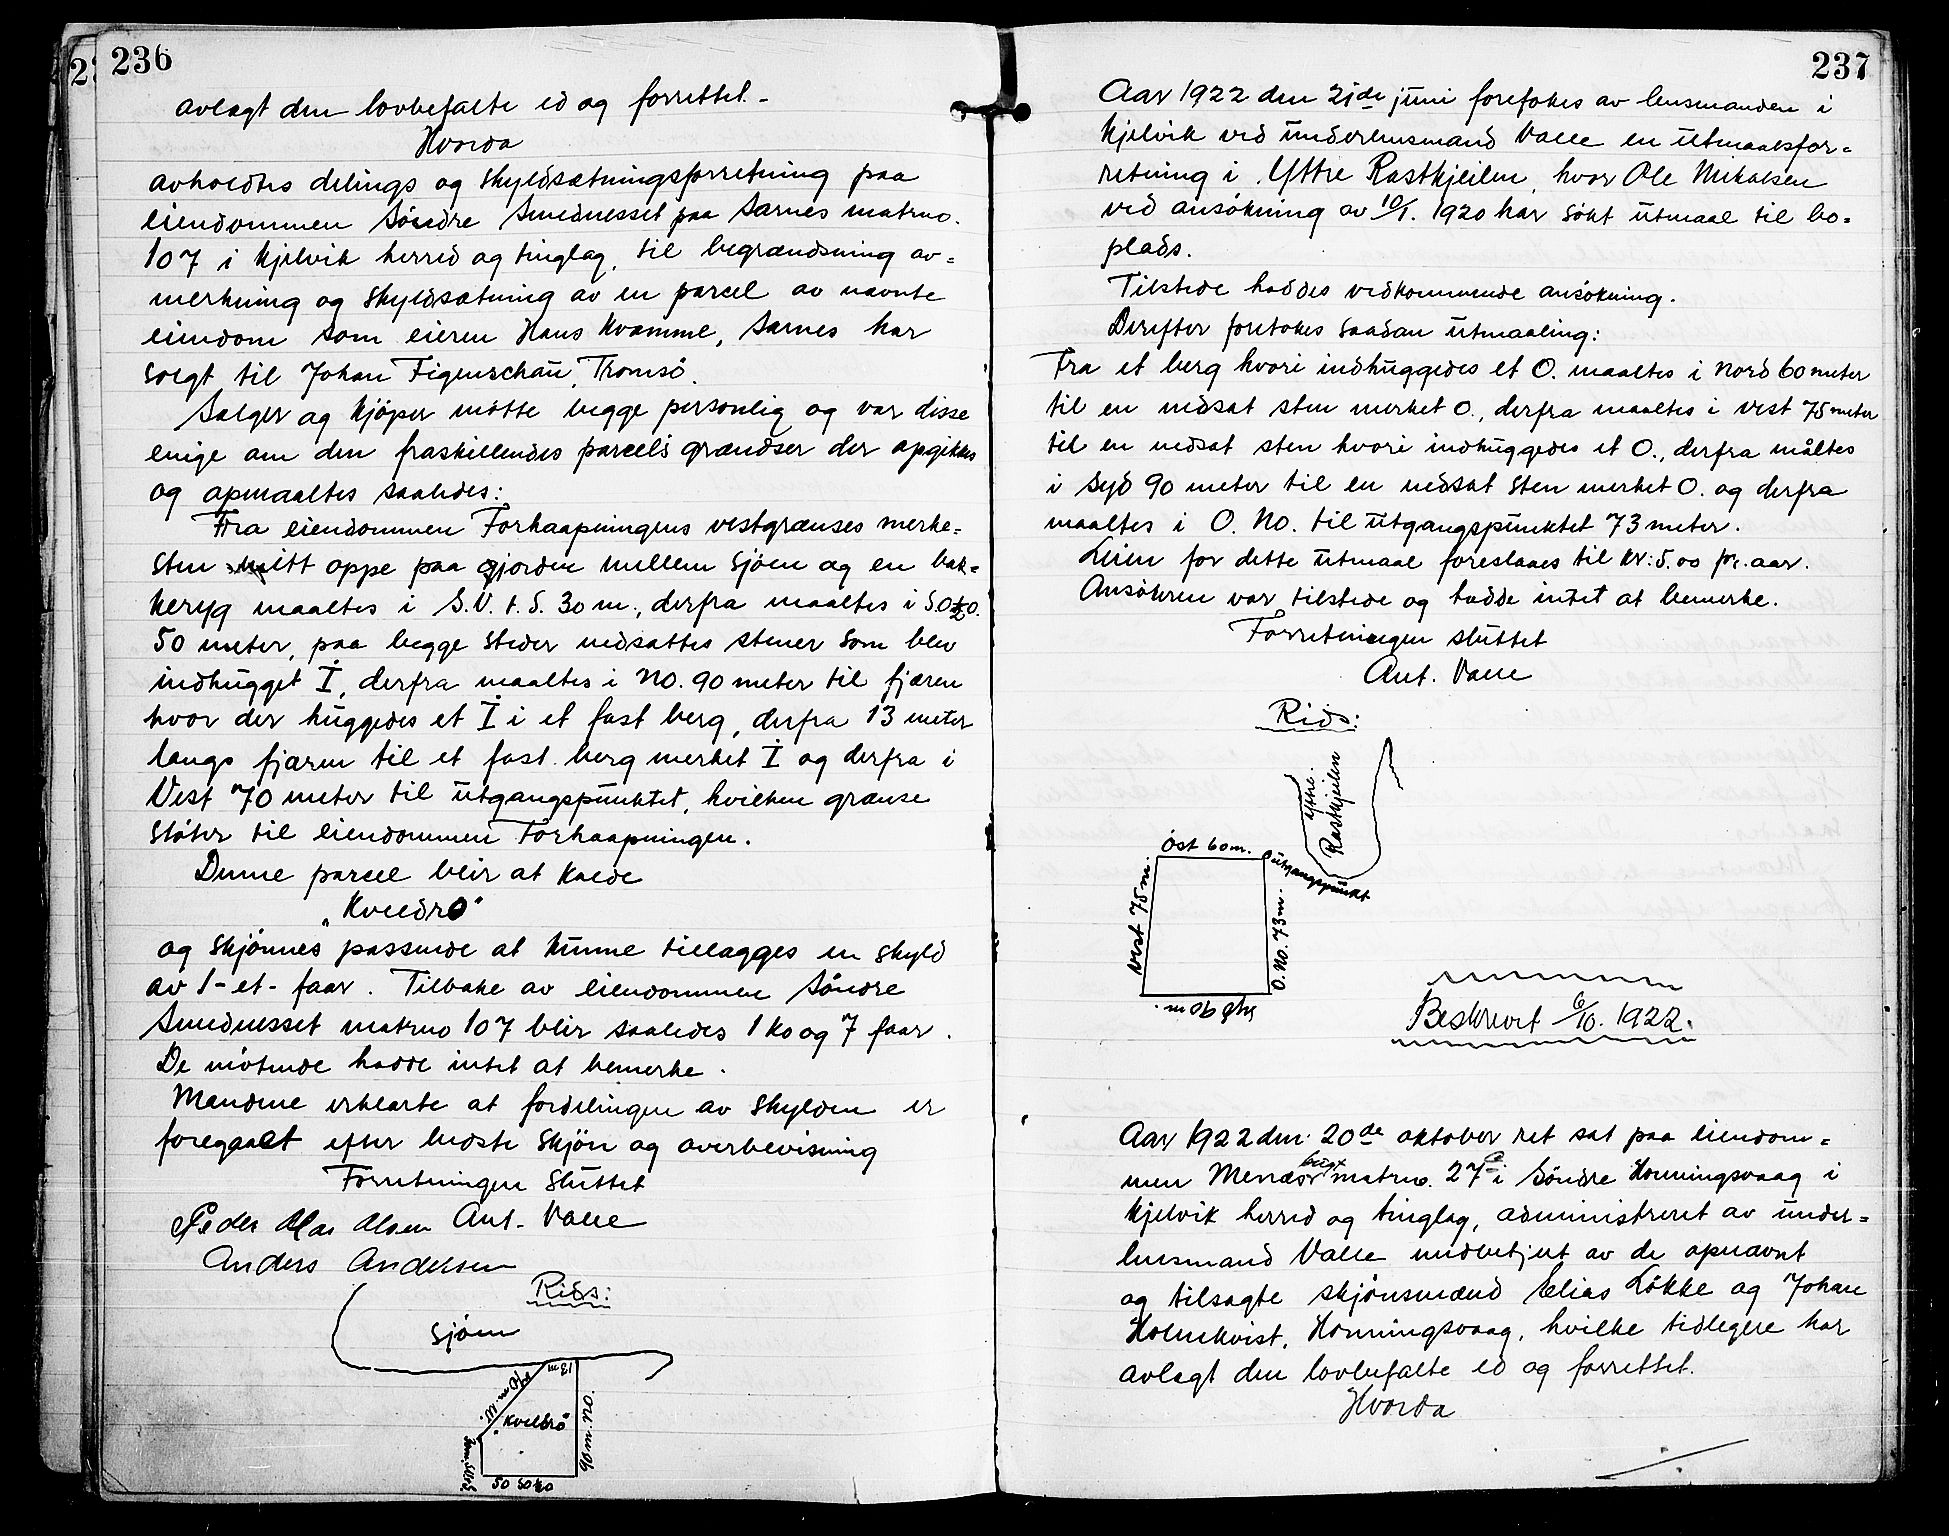 236
avlagt den lovbefalte ed og forrettet.-
Hvorda
avholdtes delings og skyldsætningsforretning paa
eiendommen Söndre Smednesset paa Sarnes matrno.
107 i Kjelvik herred og tinglag, til begrændsning av=
merkning og skyldsætning av en parcel av nævnte
eiendom som eieren Hans Kvamme, Sarnes har
solgt til Johan Figenschau, Tromsö.
Sælger og kjöper mötte begge personlig og var disse
enige om den fraskillendes parcels grændser der opgikkes
og opmaaltes saaledes:
Fra eiendommen Forhaapningens vestgrænses merke=
sten mitt oppe paa gjorden mellem sjöen og en bak=
keryg maaltes i S.V. t. S. 30 m., derfra maaltes i S.O.t.O.
50 meter, paa begge steder nedsattes stener som blev
indhugget İ, derfra maaltes i NO. 90 meter til fjæren
hvor der huggedes et İ i et fast berg, derfra 13 meter
langs fjæren til et fast berg merket İ og derfra i
Vest 70 meter til utgangspunktet, hvilken grænse
stöter til eiendommen Forhaapningen.
Denne parcel blir at kalde
"Kveldrö"
og skjönnes passende at kunne tillægges en skyld
av 1-et- faar. Tilbake av eiendommen Söndre
Smednesset matrno 107 blir saaledes 1 ko og 7 faar.
De mötende hadde intet at bemerke.
Mændene erklærte at fordelingen av skylden er
foregaaet efter bedste skjön og overbevisning
Forretningen sluttet
Peder Olai Olsen Ant. Valle
Anders Andersen
Rids:
Sjöen
13 m
70 m. V.
"Kveldrö"
90 m. NO.
50 SOtO
237
Aar 1922 den 21de juni foretokes av lensmanden i
Kjelvik ved underlensmand Valle en utmaalsfor=
retning i Yttre Rastkjeilen, hvor Ole Mikalsen
ved ansökning av 10/1. 1920 har sökt utmaal til bo=
plads.
Tilstede haddes vedkommende ansökning.
Derefter foretokes saadan utmaaling:
Fra et berg hvori indhuggedes et O. maaltes i Nord 60 meter
til en nedsat sten merket O., derfra maaltes i vest 75 meter
til en nedsat sten hvori indhuggedes et O., derfra måltes
i Syd 90 meter til en nedsat sten merket O. og derfra
maaltes i O. NO. til utgangspunktet 73 meter.
Leien for dette utmaal foreslaaes til kr: 5.00 pr. aar.
Ansökeren var tilstede og hadde intet at bemerke.
Forretningen sluttet
Ant. Valle
Rids:
Yttre.
Rastkjeilen
Öst 60 m.
utgangspunkt
Vest 75 m.
O. NO. 73 m.
Syd 90 m.
Beskrevet 6/10. 1922.
Aar 1922 den 20de oktober ret sat paa eiendom=
men matrno. 27 i Söndre Honningsvaag i
Kjelvik herred og tinglag, administreret av under=
lensmand Valle medbetjent av de opnævnt
og tilsagte skjönsmænd Elias Lökke og Johan
Holmkvist, Honningsvaag, hvilke tidligere har
avlagt den lovbefalte ed og forrettet.
Hvorda